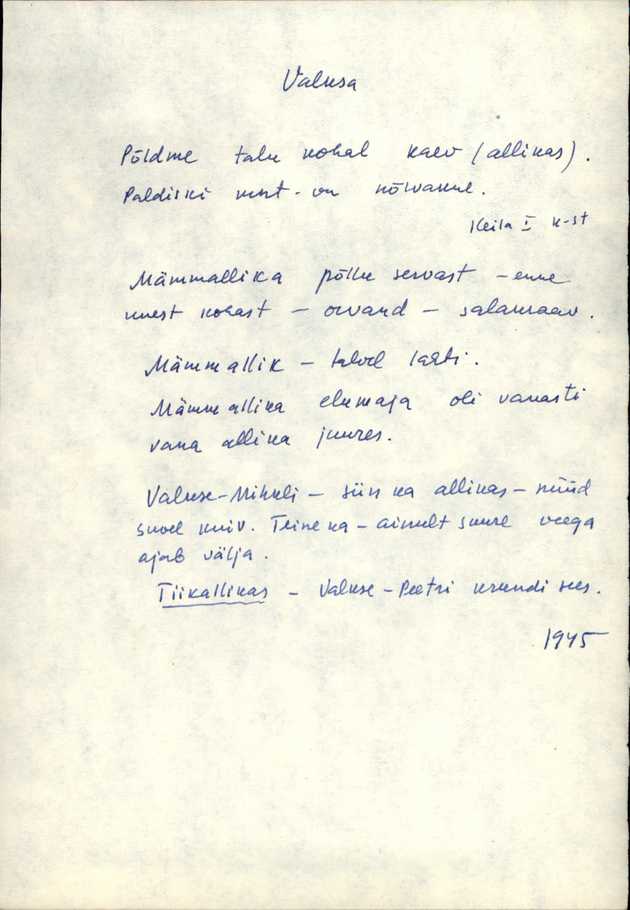 Valusa
Põldme talu kohal kaev (allikas).
Paldiski mnt. on kõrvanne.
Keila I k-st
Mämmallika põllu servast – enne
unest kohast – orvand – salakaav.
Mämmallik – talvel lahti.
Mämmallika elumaja oli vanasti
vana allika juures.
Valuse-Mihkli – siin ka allikas – nüüd
suvel kuiv. Teine ka – ainult suure veega
ajab välja.
Tiikallikas – Valuse-Peetri krundi sees.
1945